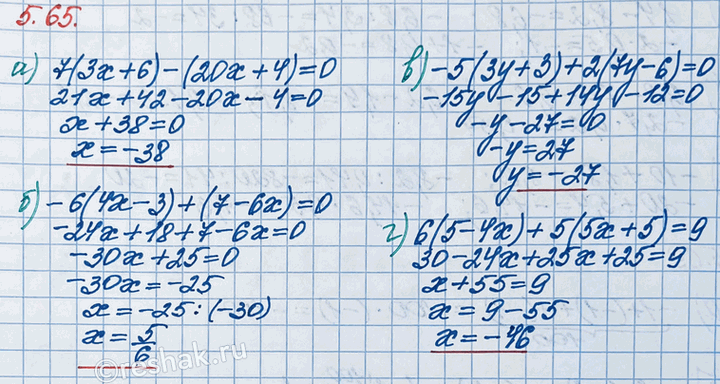 5.65.
а) 7(3x+6)-(20x+4)=0
21x+42-20x-4=0
x+38=0
x=-38
б) -6(4x-3)+(7-6x)=0
-24x+18+7-6x=0
-30x+25=0
-30x=-25
x=-25:(-30)
x=5/6
в) -5(3y+3)+2(7y-6)=0
-15y-15+14y-12=0
-y-27=0
-y=27
y=-27
г) 6(5-4x)+5(5x+5)=9
30-24x+25x+25=9
x+55=9
x=9-55
x=-46
©reshak.ru